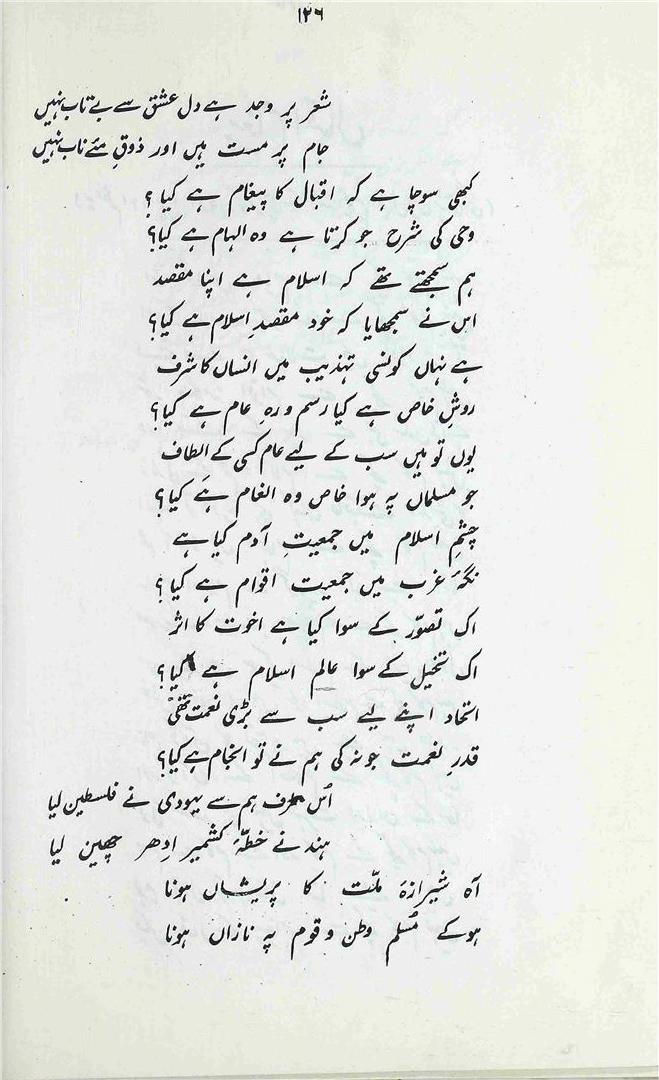 ۱۲۶
شعر پر وجد ہے دل عشق سے بے تاب نہیں
جام پر مست ہیں اور ذوقِ مئے ناب نہیں
کبھی سوچا ہے کہ اقبال کا پیغام ہے کیا ؟
وحی کی شرح جو کرتا ہے وہ الہام ہے کیا؟
ہم سمجھتے تھے کہ اسلام ہے اپنا مقصد
اس نے سمجھایا کہ خود مقصدِ اسلام ہے کیا؟
ہے نہاں کونسی تہذیب میں انساں کا شرف
روشِ خاص ہے کیا رسم و رہِ عام ہے کیا؟
یوں تو ہیں سب کے لیے عام کسی کے الطاف
جو مسلماں پہ ہوا خاص وہ انعام ہے کیا؟
چشمِ اسلام میں جمعیتِ آدم کیا ہے
نگہِ غرب میں جمعیت اقوام ہے کیا ؟
اک تصوّر کے سوا کیا ہے اخوت کا اثر
اک تخیل کے سوا عالمِ اسلام ہے کیا؟
اتحاد اپنے لیے سب سے بڑی نعمت تھی
قدرِ نعمت جو نہ کی ہم نے تو انجام ہے کیا؟
اُس طرف ہم سے یہودی نے فلسطین لیا
ہند نے خطۂ کشمیر اِدھر چھین لیا
آہ شیرازۂ ملّت کا پریشاں ہونا
ہو کے مُسلم وطن و قوم پہ نازاں ہونا